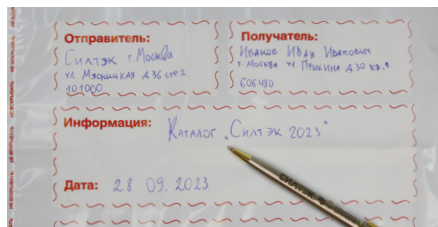 Отправитель:
Силтэк г. Москва
ул. Мясницкая д 36 стр 2
101000
Получатель:
Иванов Иван Иванович
г. Москва ул Пушкина д 30 кв. 8
606480
Информация:
Каталог „Силтэк 2023"
Дата:
28.09.2023